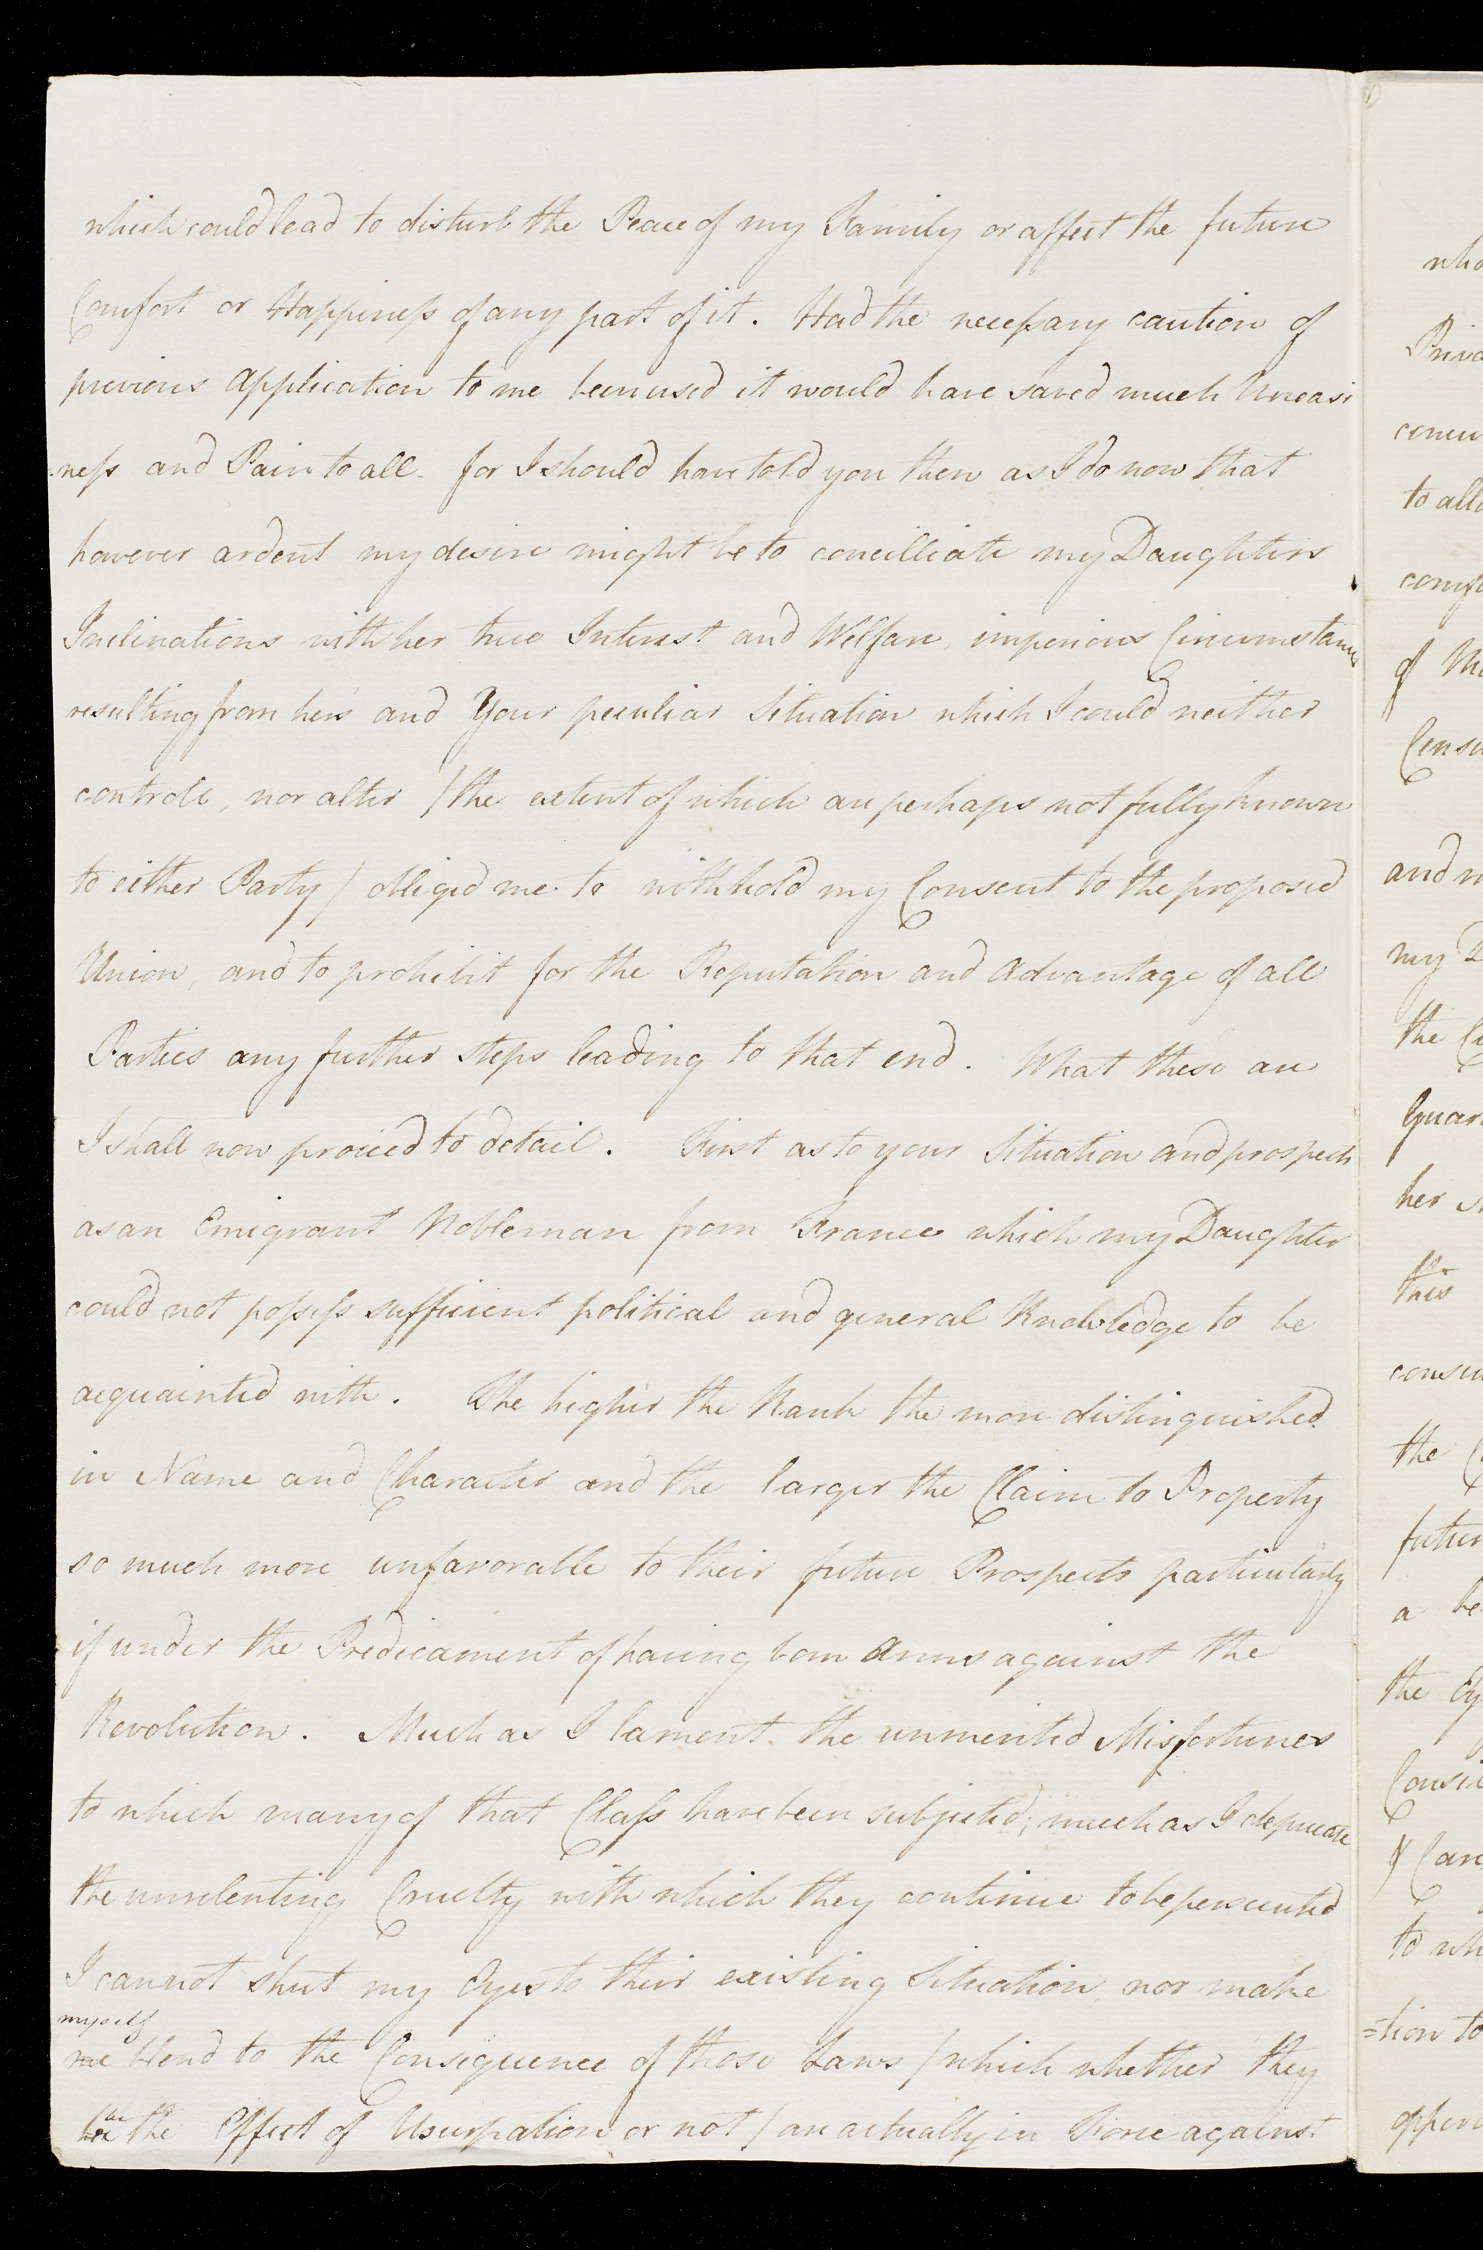 which could lead to disturb the Peace of my Family or affect the future
Comfort or Happiness of any part of it. Had the necessary caution of
previous Application to me been used it would have saved much Uneasi
-ness and Pain to all. for I should have told you then as I do now that
however ardent my desire might be to concilliate my Daughters
Inclinations with her true Interest and Welfare, imperious Circumstances
resulting from hers and Your peculiar Situation which I could neither
controle, nor alter / the extent of which are perhaps not fully known
to either Party / obliged me to withhold my Consent to the proposed
Union, and to prohibit for the Reputation and Advantage of all
Parties any further steps leading to that end. What these are
I shall now proceed to detail. First as to your Situation and prospects
as an Emigrant Nobleman from France which my Daughter
could not possess sufficient political and general Knowledge to be
acquainted with. The higher the Rank the more distinguished
in Name and Character and the larger the Claim to Property
so much more unfavorable to their future Prospects particularly
if under the Predicament of having born Arms against the
Revolution. Much as I lament the unmerited Misfortunes
to which many of that Class have been subjected; much as I deprecate
the unrelenting Cruelty with which they continue to be persecuted
I cannot shut my Eyes to their existing Situation, nor make
myself
me blend to the Consequence of those Laws / which whether they
are
the Effect of Usurpation or not / are actually in Force against
who
Priva
concur
to all
comp
of
Censu
and
my
the
Guar
her
this
the
futur
a be
the
Consi
of Car
to wh
=tion to